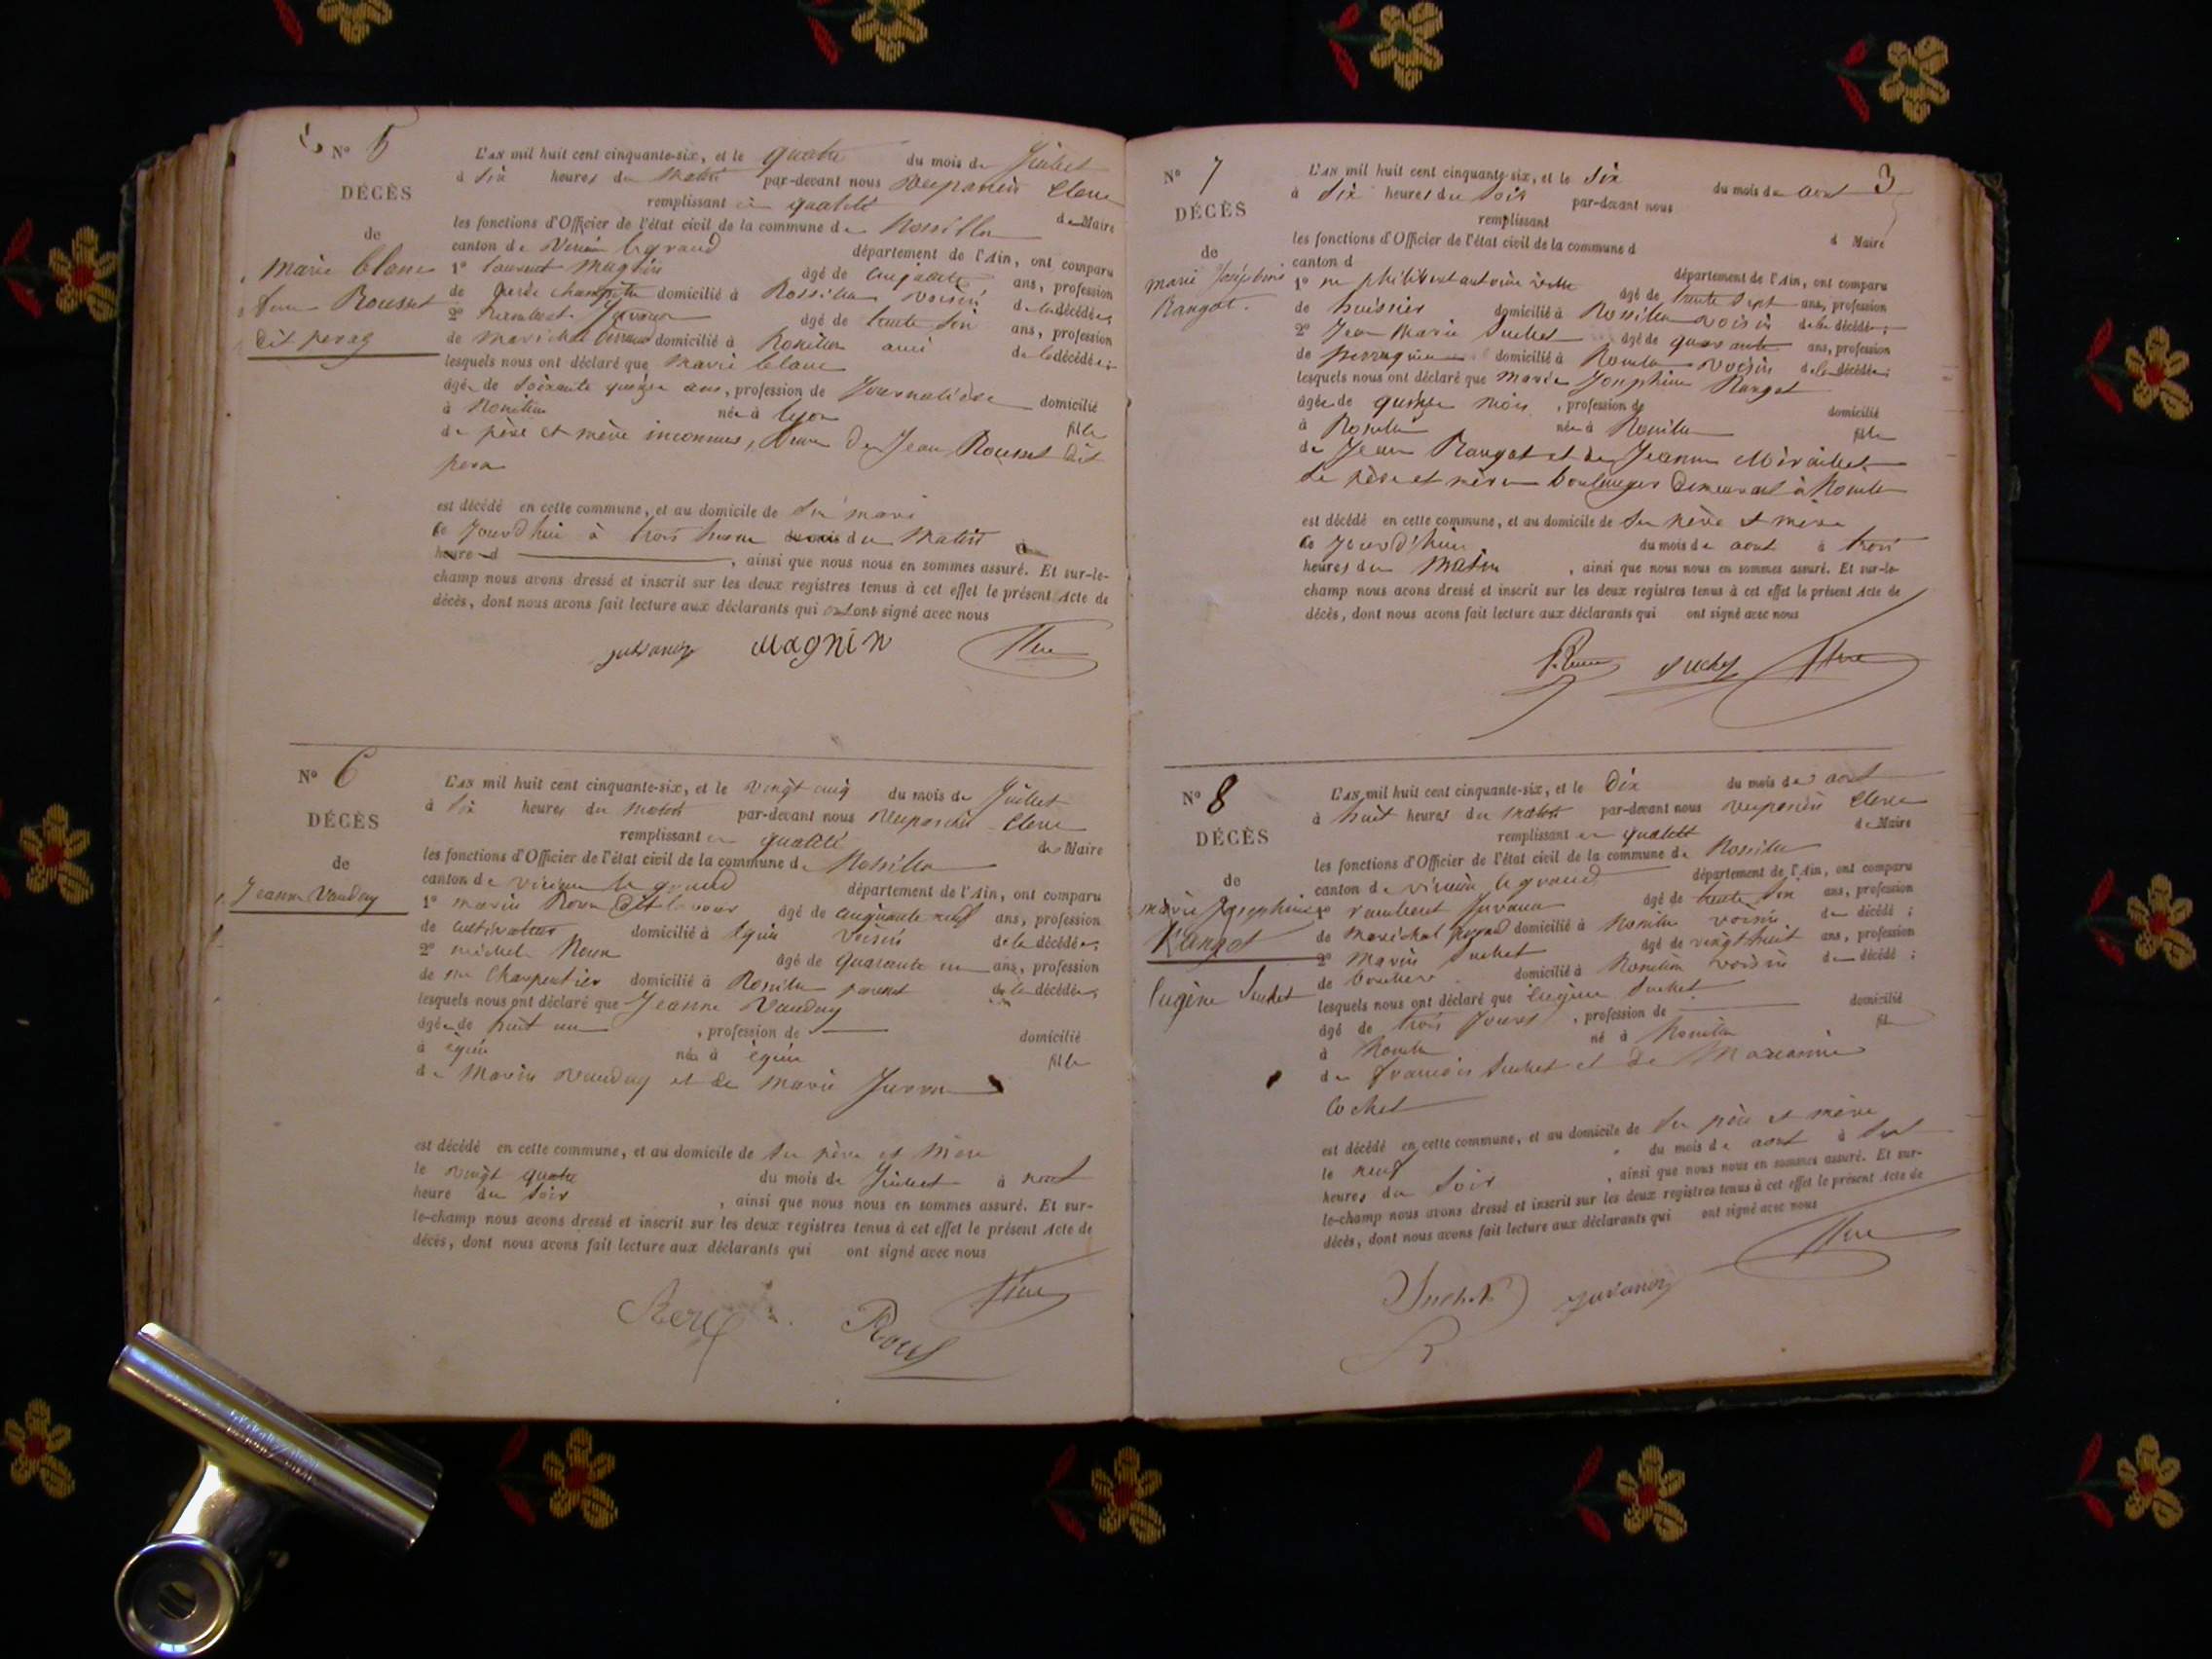 N° 5
DÉCÈS
de
Marie Blanc
Rousset
dit
L'AN mil huit cent cinquante-six, et le quatre du mois de Juillet
à six heures du matin par-devant nous Clerc
remplissant en qualité de Maire
les fonctions d'Officier de l'état civil de la commune de Rossillon
canton de Virieu le grand département de l'Ain, ont comparu
1° Laurent Magnin âgé de cinquante ans, profession
de garde champêtre domicilié à Rossillon voisin de la décédée,
2° Rambert Juvanon âgé de trente six ans, profession
de maréchal ferrand domicilié à Rossillon ami de la décédée;
lesquels nous ont déclaré que Marie Blanc
âgée de soixante quinze ans, profession de Journalière domicilié
à Rossillon née à Lyon fille
de père et mère inconnus, Veuve de Jean Rousset dit
pera
est décédé en cette commune, et au domicile de son mari
ce Jourd'hui à trois heures du matin
heure d , ainsi que nous nous en sommes assuré. Et sur-le-
champ nous avons dressé et inscrit sur les deux registres tenus à cet effet le présent Acte de
décès, dont nous avons fait lecture aux déclarants qui ont signé avec nous
Juvanon Magnin
N° 6
DÉCÈS
de
Jeanne Vauday
L'AN mil huit cent cinquante-six, et le vingt cinq du mois de Juillet
à six heures du matin par-devant nous Clerc
remplissant en qualité de Maire
les fonctions d'Officier de l'état civil de la commune de Rossillon
canton de Virieu le grand département de l'Ain, ont comparu
1° Marin Roux dit âgé de cinquante neuf ans, profession
de cultivateur domicilié à Egieu voisin de la décédée,
2° Michel Roux âgé de quarante un ans, profession
de Charpentier domicilié à Rossillon parent de la décédée;
lesquels nous ont déclaré que Jeanne Vauday
âgée de huit , profession de domicilié
à Egieu née à Egieu fille
de Marin Vauday et de Marie
est décédé en cette commune, et au domicile de ses père et mère
le vingt quatre du mois de Juillet à
heure du soir , ainsi que nous nous en sommes assuré. Et sur-
le-champ nous avons dressé et inscrit sur les deux registres tenus à cet effet le présent Acte de
décès, dont nous avons fait lecture aux déclarants qui ont signé avec nous
3
N° 7
DÉCÈS
de
Marie Joséphine
Rangot.
L'AN mil huit cent cinquante-six, et le six du mois de août
à six heures du soir par-devant nous
remplissant d Maire
les fonctions d'Officier de l'état civil de la commune d
canton d département de l'Ain, ont comparu
1° philibert antoine âgé de trente sept ans, profession
de huissier domicilié à Rossillon voisin de la décédée;
2° Jean Marie Suchet âgé de quarante ans, profession
de perruquier domicilié à Rossillon voisin de la décédée;
lesquels nous ont déclaré que Marie Josephine Rangot
âgée de quinze mois , profession de domicilié
à Rossillon née à Rossillon fille
de Jean Rangot et de Jeanne
ses père et mère boulanger demeurant à Rossillon
est décédé en cette commune, et au domicile de ses père et mère
ce Jourd'hui du mois de août à trois
heures du matin , ainsi que nous nous en sommes assuré. Et sur-le-
champ nous avons dressé et inscrit sur les deux registres tenus à cet effet le présent Acte de
décès, dont nous avons fait lecture aux déclarants qui ont signé avec nous
Suchet
N° 8
DÉCÈS
de
Marie Josephine
Rangot
Eugène Suchet
L'AN mil huit cent cinquante-six, et le Dix du mois de août
à huit heures du matin par-devant nous Clerc
remplissant en qualité de Maire
les fonctions d'Officier de l'état civil de la commune de Rossillon
canton de Virieu le grand département de l'Ain, ont comparu
1° rambert Juvanon âgé de trente six ans, profession
de maréchal ferrand domicilié à Rossillon voisin du décédé;
2° Marin Suchet âgé de vingt huit ans, profession
de boucher domicilié à Rossillon voisin du décédé;
lesquels nous ont déclaré que Eugène Suchet
âgé de trois jours , profession de domicilié
à Rossillon né à Rossillon fils
de François Suchet et de Marianne
Cochet
est décédé en cette commune, et au domicile de ses père et mère
le neuf du mois de août à sept
heures du soir , ainsi que nous nous en sommes assuré. Et sur-
le-champ nous avons dressé et inscrit sur les deux registres tenus à cet effet le présent Acte de
décès, dont nous avons fait lecture aux déclarants qui ont signé avec nous
Suchet Juvanon